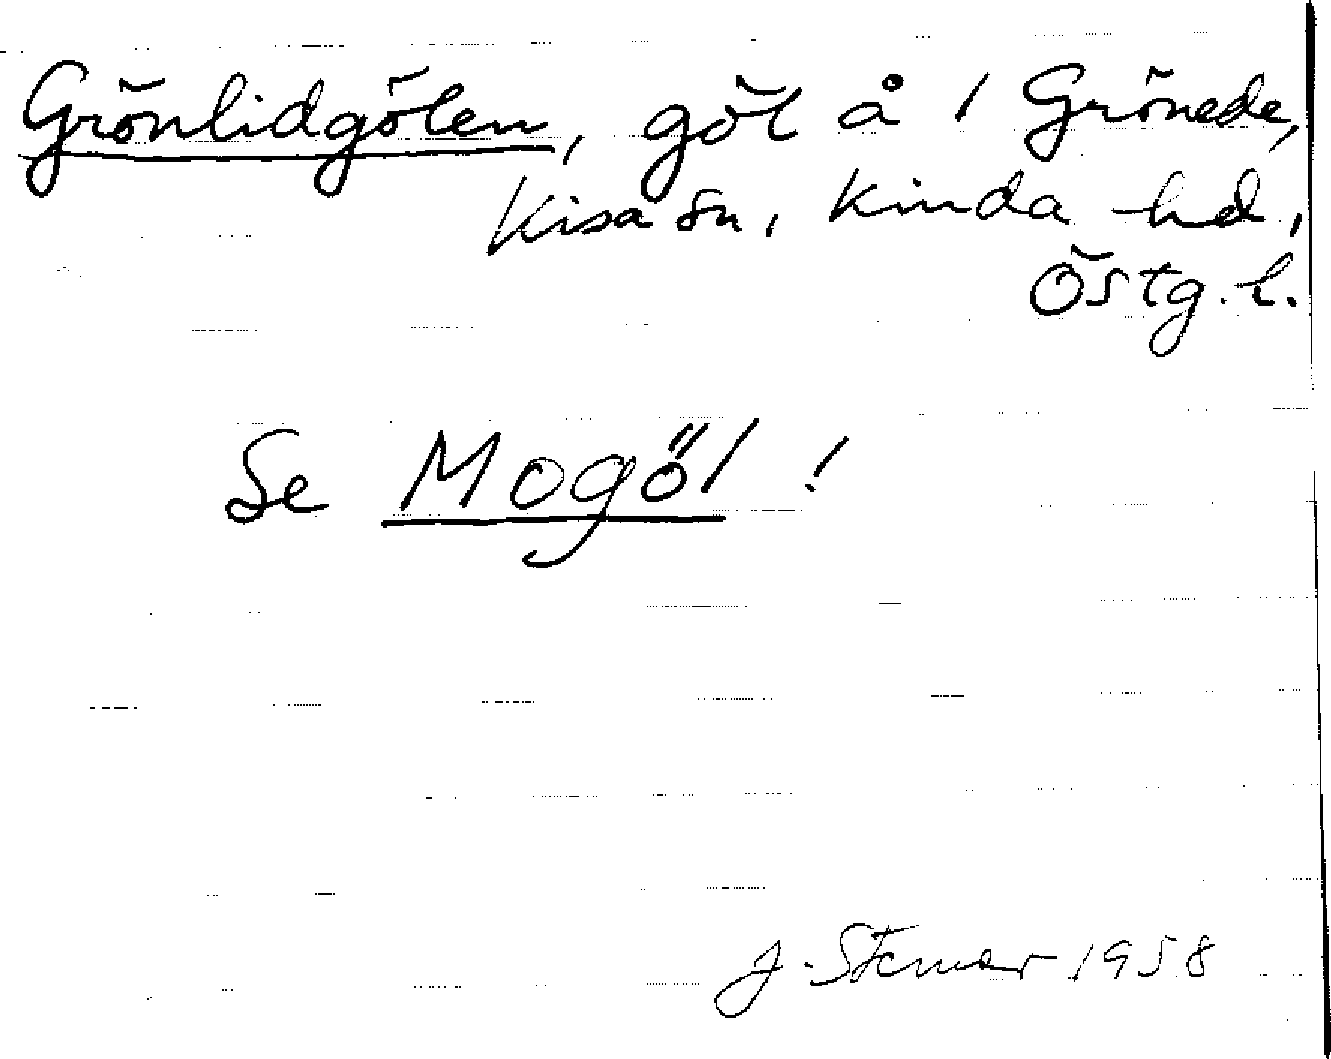 Grönlidgölen, göl å 1 Grönede,
Kisa sn, Kinda hd,
Östg. l.
Se Mogöl!
J. Stemar 1958